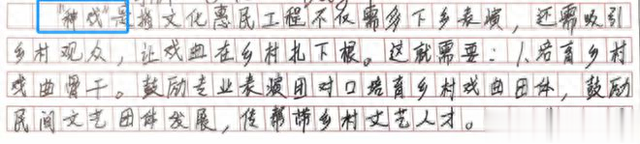 “种戏”是指文化惠民工程不仅需多下乡表演，还需吸引
乡村观众，让戏曲在乡村扎下根。这就需要：1.培育乡村
戏曲骨干。鼓励专业表演团对口培育乡村戏曲团体，鼓励
民间文艺团体发展，传帮带乡村文艺人才。